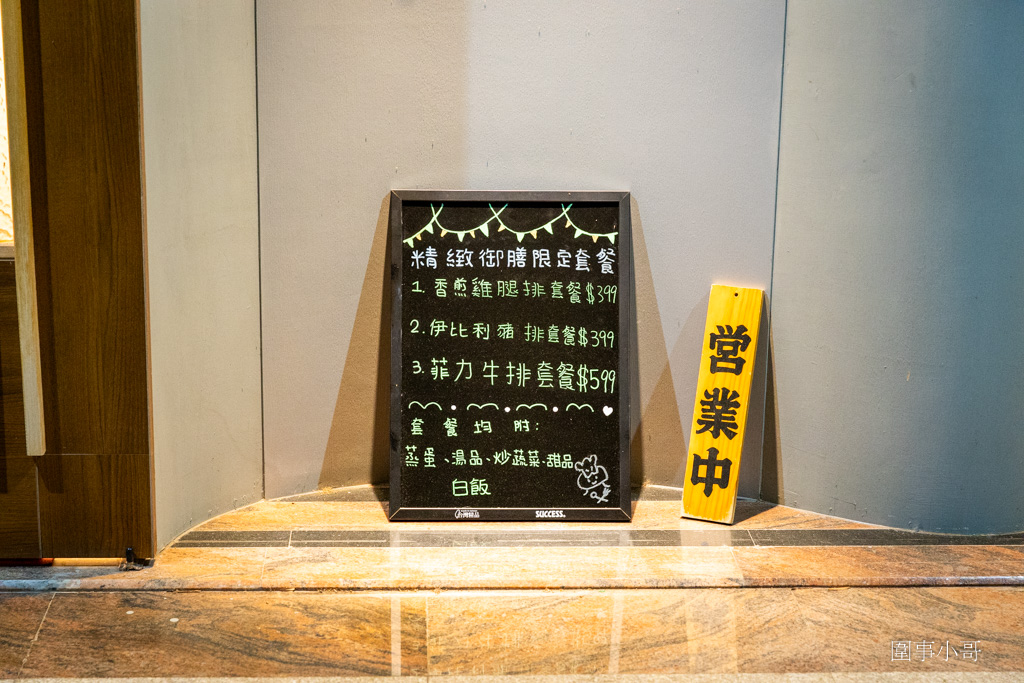 精緻御膳限定套餐
1. 香煎雞腿排套餐$399
2. 伊比利豬排套餐$399
3. 菲力牛排套餐$599
套餐均附:
蒸蛋、湯品、炒蔬菜、甜品
白飯
SUCCESS.
営業中
圍事小哥